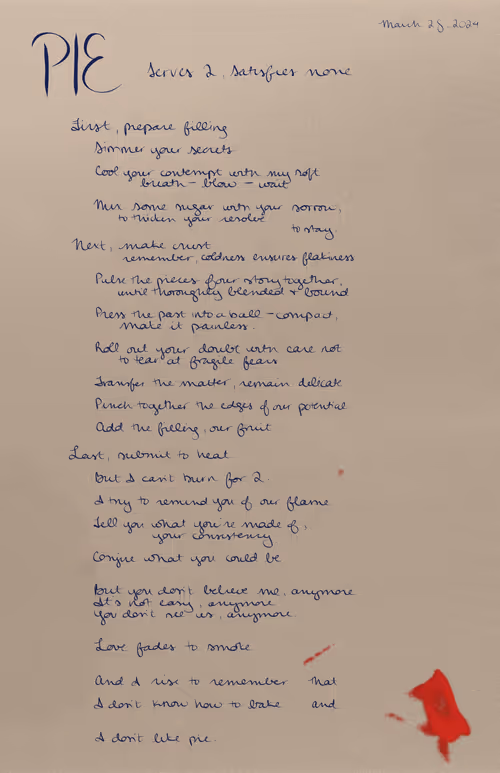 March 25, 2024
PIE
Serves 2, satisfies none
First, prepare filling
Simmer your secrets
Cool your contempt with my soft
breath - blow - wait
Mix some sugar with your sorrow,
to thicken your resolve
to stay.
Next, make crust
remember, coldness ensures flakiness
Pulse the pieces of our story together,
until thoroughly blended & bound
Press the past into a ball - compact,
make it painless.
Roll out your doubt with care not
to tear at fragile fears
Transfer the matter, remain delicate
Pinch together the edges of our potential
Add the filling, our fruit
Last, submit to heat
But I can't burn for 2.
I try to remind you of our flame
Tell you what you're made of,
your consistency
Conjure what you could be
But you don't believe me, anymore
It's not easy, anymore
You don't see us, anymore.
Love fades to smoke
And I rise to remember that
I don't know how to bake and
I don't like pie.